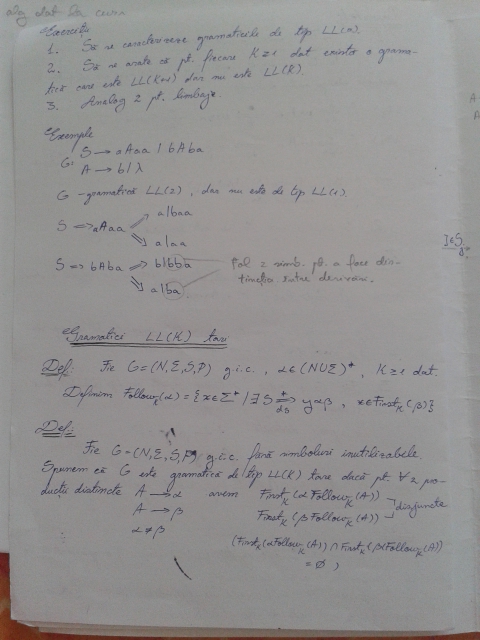 Exerciții
1. Să se caracterizeze gramaticile de tip LL(0).
2. Să se arate că pt. fiecare K≥1 dat există o grama-
tică care este LL(K+1) dar nu este LL(K).
3. Analog 2 pt. limbaje.
Exemple
G: S → aAaa | bAba
A → b | λ
G - gramatică LL(2), dar nu este de tip LL(1).
S ⇒ aAaa a|baa
a|aa
S ⇒ bAba b|bba
a|ba
Fol 2 simb. pt. a face dis-
tincția între derivări.
Gramatici LL(K) tari
Def: Fie G=(N,Σ,S,P) g.i.c., α∈(N∪Σ)*, K≥1 dat.
Definim Follow_K(α) = {x∈Σ* / ∃ S ⇒* ds yαβ, x∈First_K(β)}
Def:
Fie G=(N,Σ,S,P) g.i.c. fără simboluri inutilizabele.
Spunem că G este gramatică de tip LL(K) tare dacă pt. ∀ 2 pro-
ducții distincte A → α avem First_K(αFollow_K(A))
A → β First_K(βFollow_K(A)) disjuncte
α≠β
(First_K(αFollow_K(A)) ∩ First_K(βFollow_K(A))
= ∅)